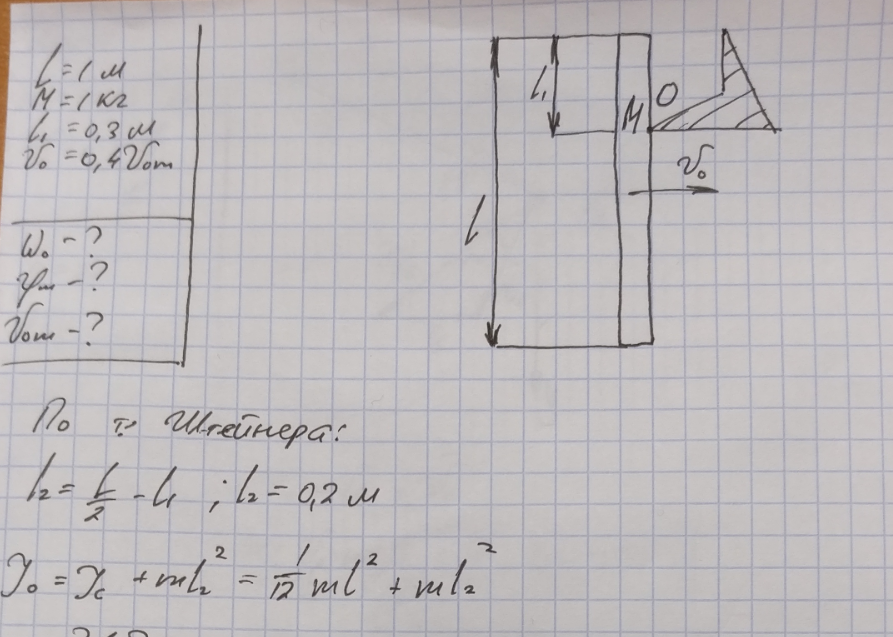 l = 1 м
M = 1 кг
l₁ = 0,3 м
v₀ = 0,4 v₀ₘ
ω₀ - ?
φₘ - ?
v₀ₘ - ?
l₁
M
O
v₀
l
По т. Штейнера:
l₂ = l/2 - l₁ ; l₂ = 0,2 м
J₀ = J_c + ml₂² = 1/12 ml² + ml₂²